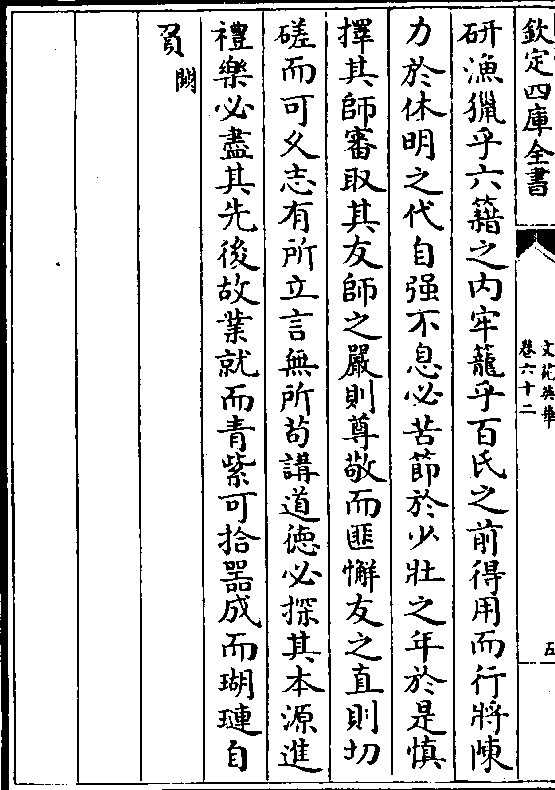 欽定四庫全書
文苑英華
卷六十二
五
研漁獵乎六籍之内牢籠乎百氏之前得用而行將陳
力於休明之代自强不息必苦節於少壯之年於是慎
擇其師審取其友師之嚴則尊敬而匪懈友之直則切
磋而可久志有所立言無所茍講道德必探其本源進
禮樂必盡其先後故業就而青紫可拾器成而瑚璉自
貿闕